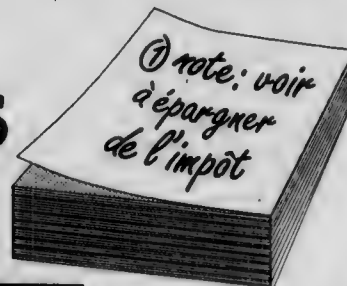 ① note: voir
à épargner
de l'impôt